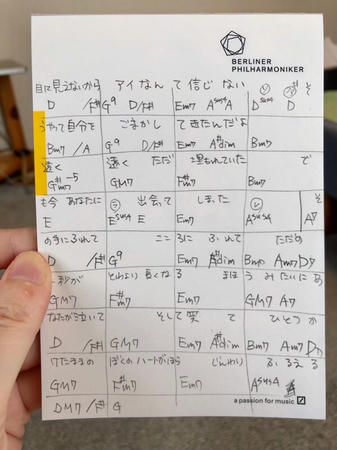 BERLINER
PHILHARMONIKER
目に見えないから アイなんて信じない そ
D /F# G9 D/F# Em7 Asus4 A Dsus4 D
うやって自分を ごまかし てきたんだよ
Bm7 /A G9 D/F# Em7 A#dim Bm7
遠く 遠く ただ 埋もれていた で
G#m7-5 GM7 F#m7 Bm7
も今 あなたに ラ 出会って しまった ラ そ
E Esus4 E Em7 Asus4 A7
の手にふれて こころに ふれて ただの
D /F# G9 Em7 A#dim Bm7 Am7 D7
秒が とわより長くなる まほうみたいにあ
GM7 F#m7 Em7 GM7 A7
なたが泣いて そして笑て ひとうか
D /F# GM7 Em7 A#dim Bm7 Am7 D7
けたままの ぼくのハートがほら じんわり ふるえる
GM7 F#m7 Em7 Asus4 A
a passion for music
DM7 /F# G